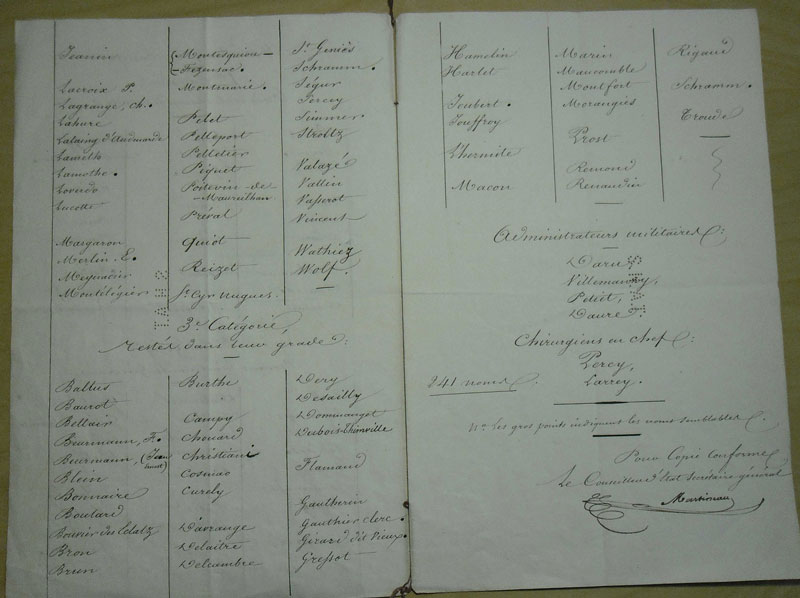 Jeanin
Lacroix P.
Lagrange, Ch.
Lahure
Lalaing d'Audenarde
Lameth
Lamothe.
Loverdo
Lucotte
Margaron
Merlin. E.
Meynadier
Montélégier
Montesquiou-
Fezensac.
Montmarie.
Pelet
Pelleport
Pelletier
Piquet
Poitevin-de-
Maureilhan
Préval
Quiot
Reizet
St Cyr Nugues.
St Geniès
Schramm.
Ségur
Sorcey
Simmer.
Stroltz
Valazé
Vallin
Vasserot
Vincent
Wathiez
Wolf.
3e Catégorie,
restés dans leur grade:
Baltus
Baurot
Bellair
Beurmann, F.
Beurmann, (Jean
Blein
Bonnaire
Boulard
Bouvier des Eclatz
Bron
Brun
Burthe
Campy
Chouard
Christiani
Cosnac
Curely
Davrange
Delaitre
Delcambre
Dery
Desailly
Dommanget
Dubois-Thinville
Flamand
Gautherin
Gauthier clerc.
Girard dit Vieux.
Gressot
Hamelin
Harlet
Joubert.
Jouffroy
Lhermite
Macon
Marin
Maucomble
Montfort
Morangiés
Prost
Remond
Renaudin
Rigaud
Schramm.
Troude
Administrateurs militaires:
Daru
Villemanzy,
Petiet,
Daure
Chirurgiens en chef:
Percy,
Larrey.
241 noms.
Na Les gros points indiquent les noms semblables.
Pour Copie Conforme
Le Conseiller d'Etat Secrétaire général
Martineau